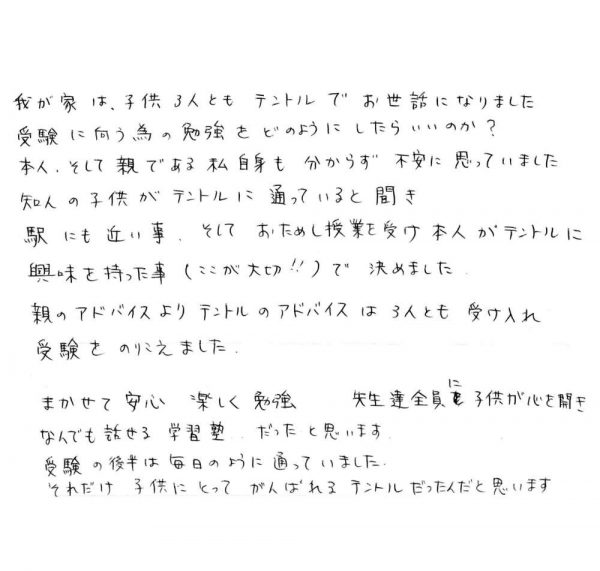 我が家は、子供3人とも テントルで お世話になりました
受験に向う為の勉強を どのように したら いいのか?
本人、そして親である私自身も 分からず 不安に思っていました
知人の子供が テントルに 通っていると聞き
駅にも近い事、そして おためし授業を受け 本人がテントルに
興味を持った事(ここが大切!!)で 決めました.
親のアドバイスより テントルのアドバイスは 3人とも 受け入れ
受験を のりこえました.
まかせて 安心 楽しく 勉強 先生達全員に 子供が心を開き
なんでも話せる 学習塾 だったと思います.
受験の後半は毎日のように通っていました.
それだけ 子供に とって がんばれる テントルだったんだと思います